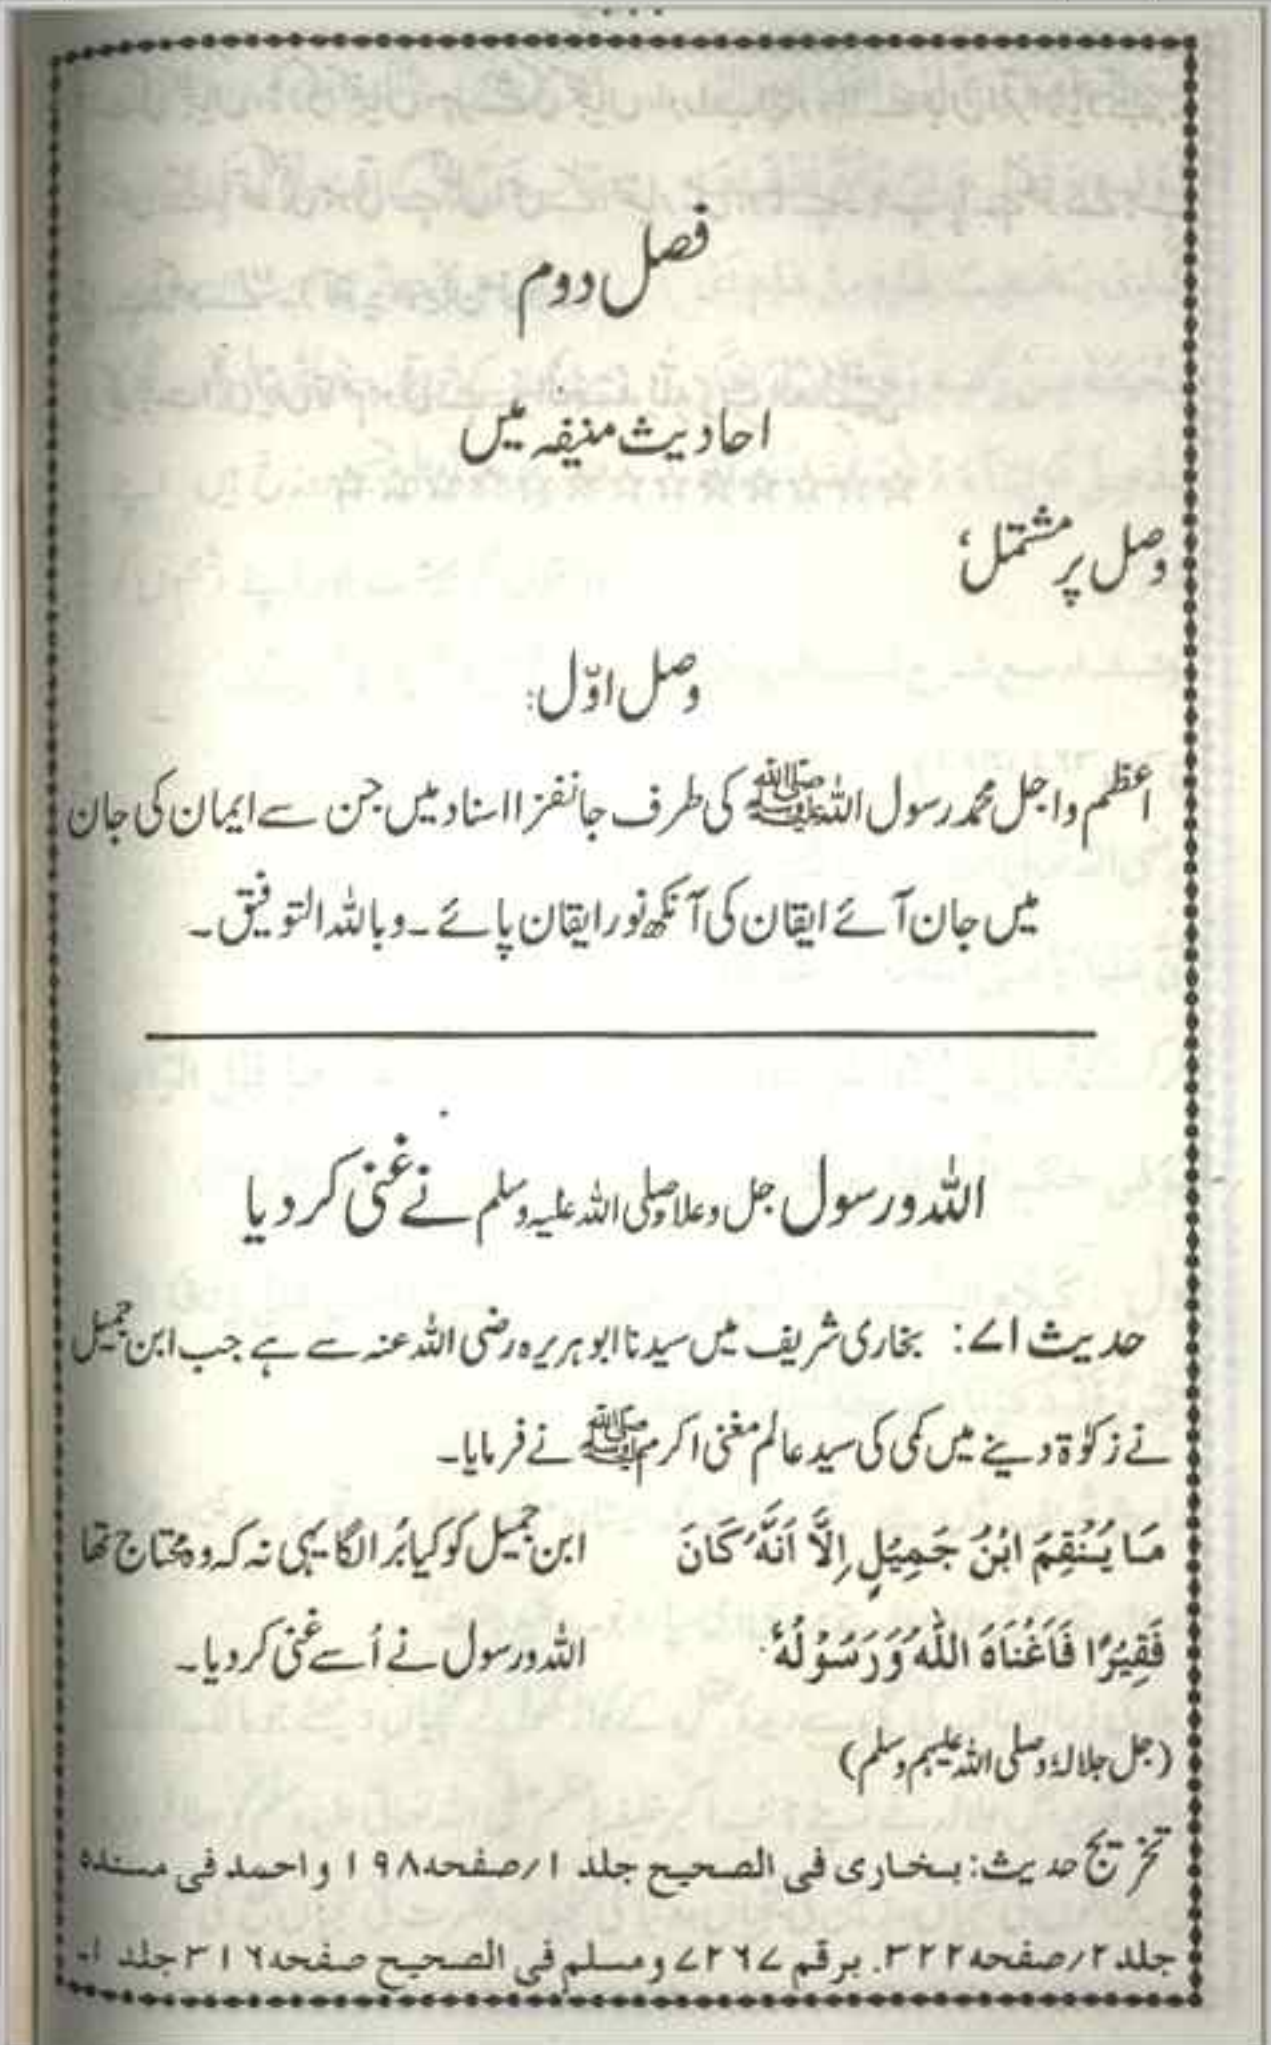 فصل دوم
احادیث منیفہ میں
وصل پر مشتمل؛
وصل اوّل:
اعظم واجل محمد رسول اللہ ﷺ کی طرف جانفزا اسناد میں جن سے ایمان کی جان
میں جان آئے ایقان کی آنکھ نور ایقان پائے۔ وباللہ التوفیق۔
اللہ ورسول جل وعلا وصلی اللہ علیہ وسلم نے غنی کر دیا
حدیث ۷۱: بخاری شریف میں سیدنا ابو ہریرہ رضی اللہ عنہ سے ہے جب ابن جمیل
نے زکوٰۃ دینے میں کمی کی سید عالم مغنی اکرم ﷺ نے فرمایا۔
مَا يُنْقِمَ ابْنُ جَمِيْلٍ اِلَّا اَنَّهٗ كَانَ ابن جمیل کو کیا بُرا لگا یہی نہ کہ وہ محتاج تھا
فَقِيْرًا فَاَغْنَاهُ اللّٰهُ وَرَسُوْلُهٗ. اللہ ورسول نے اُسے غنی کر دیا۔
(جل جلالہٗ وصلی اللہ علیہم وسلم)
تخریج حدیث: بخاری فی الصحیح جلد ۱/صفحہ ۱۹۸ واحمد فی مسندہ
جلد ۲/صفحہ ۳۲۲. برقم ۷۲۶۷ ومسلم فی الصحیح صفحہ ۳۱۶ جلد ۱۔